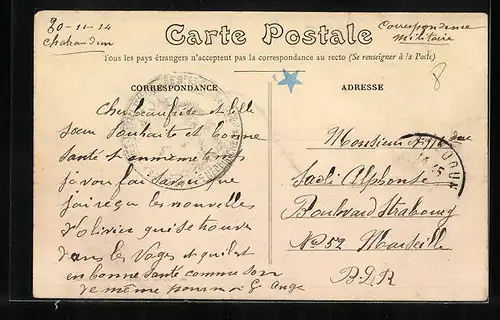 20-11-14
Chateaudun
Carte Postale
Correspondence
militaire
Tous les pays étrangers n'acceptent pas la correspondance au recto (Se renseigner à la Poste)
8
CORRESPONDANCE
ADRESSE
Cher beaufrère et belle
soeur souhaite et bonne
santé
je vou fai savoir que
jai reçu les nouvelles
d'olivier qui se trouve
dans les Voges et quil est
en bonne Santé comme son
de même pour moi G. Ange
Monsieur et
Sadli Alphonse
Boulevard Strasbourg
No 52 Marseille
B.D.R